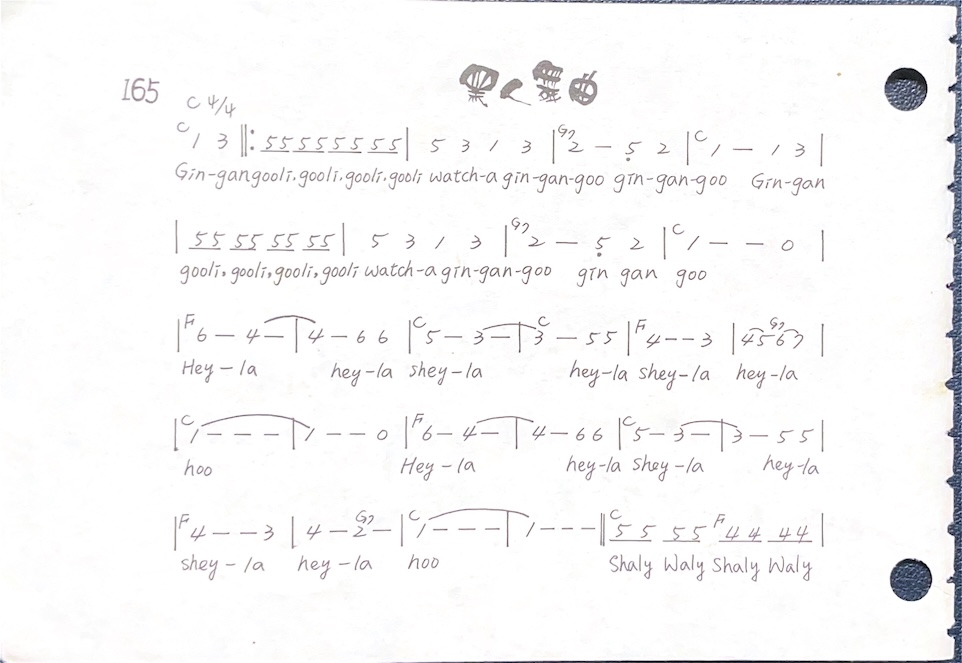 165
C 4/4
C 1 3 ‖: 55 55 55 55 | 5 3 1 3 | G7 2 — 5̣ 2 | C 1 — 1 3 |
Gin-gangooli.gooli.gooli.gooli watch-a gin-gan-goo gin-gan-goo Gin-gan
| 55 55 55 55 | 5 3 1 3 | G7 2 — 5̣ 2 | C 1 — — 0 |
gooli, gooli, gooli, gooli watch-a gin-gan-goo gin gan goo
| F 6 — 4 — | 4 — 6 6 | C 5 — 3 — | C 3 — 5 5 | F 4 — — 3 | 4 5 G7 6 7 |
Hey-la hey-la shey-la hey-la shey-la hey-la
| C 1 — — — | 1 — — 0 | F 6 — 4 — | 4 — 6 6 | C 5 — 3 — | 3 — 5 5 |
hoo Hey-la hey-la Shey-la hey-la
| F 4 — — 3 | 4 — G7 2 — | C 1 — — — | 1 — — — ‖ C 5 5 5 5 F 4 4 4 4 |
shey-la hey-la hoo Shaly Waly Shaly Waly